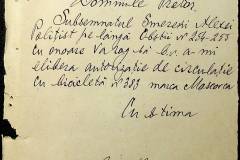 Domnule Pretor,
Subsemnatul Emereni Alexei
Polițist pe lângă Obștii nº 254-255
cu onoare Va rog să b.v. a-mi
elibera autorizație de circulație
cu bicicleta nº 383 marca
Cu stima